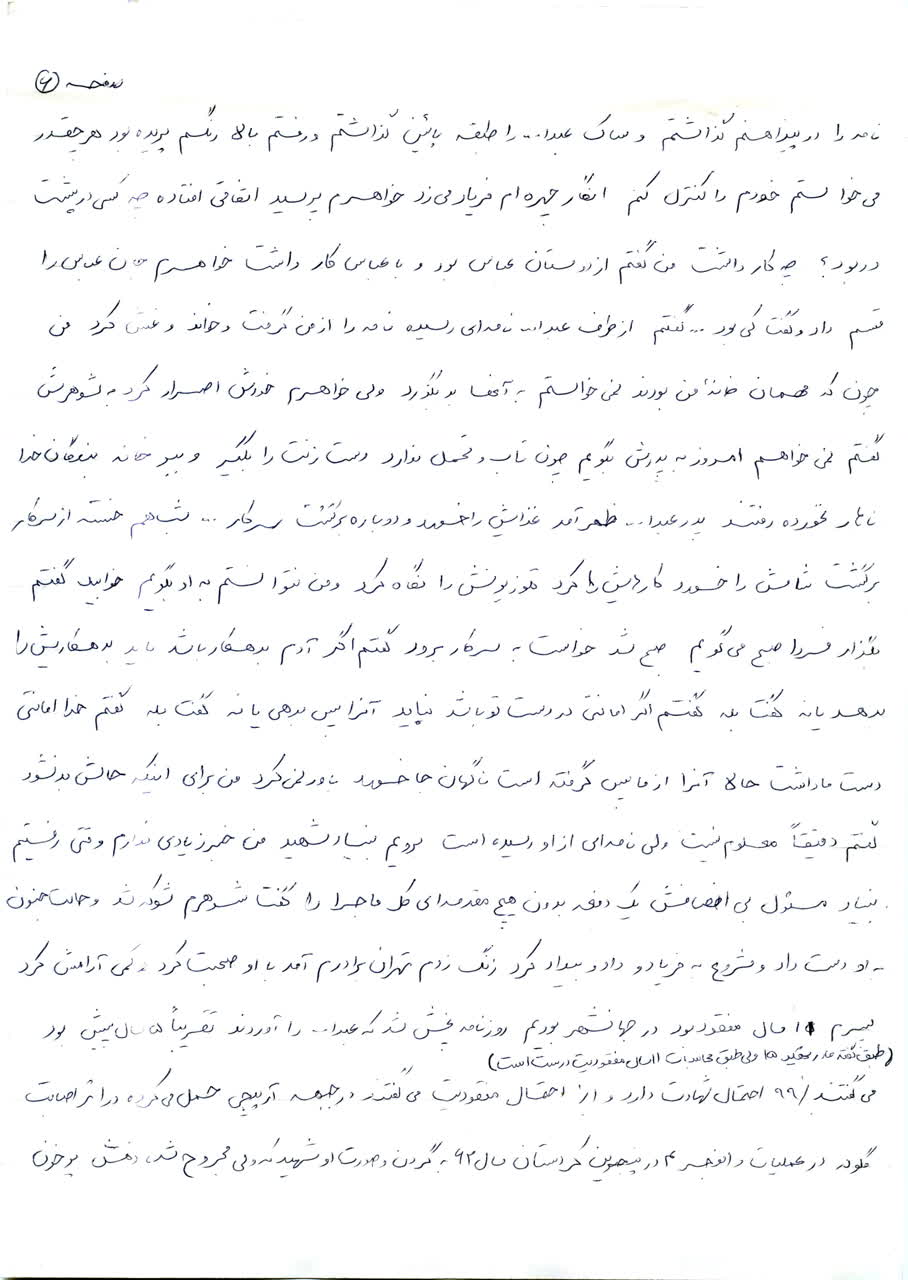 صفحه ۶
نامه را در پیراهنم گذاشتم و ساک عبدا... را طبقه پائین گذاشتم و رفتم بالا رنگم پریده بود هرچقدر
می خواستم خودم را کنترل کنم انگار چهره ام فریاد می زد خواهرم پرسید اتفاقی افتاده چه کسی در پشت
در بود؟ چه کار داشت من گفتم از دوستان عباس بود و با عباس کار داشت خواهرم جان عباس را
قسم داد و گفت کی بود ... گفتم از طرف عبدا... نامه ای رسیده نامه را از من گرفت و خواند و غش کرد من
چون که مهمان خانهٔ من بودند نمی خواستم به آنها بد بگذرد ولی خواهرم خودش اصرار کرد به شوهرش
گفتم نمی خواهم امروز به پدرش بگویم چون تاب و تحمل ندارد دست زنت را بگیر و ببر خانه بندگان خدا
ناهار نخورده رفتند پدر عبدا... ظهر آمد غذایش را خورد و دوباره برگشت سرکار ... شب هم خسته از سرکار
برگشت شامش را خورد کارهایش را کرد تلوزیونش را نگاه کرد و من نتوانستم به او بگویم خوابید گفتم
بگذار فردا صبح می گویم صبح شد خواست به سرکار برود گفتم اگر آدم بدهکار باشد باید بدهکاریش را
بدهد یا نه گفت بله گفتم اگر امانتی در دست تو باشد نباید آنرا پس بدهی یا نه گفت بله گفتم خدا امانتی
دست ما داشت حالا آنرا از ما پس گرفته است ناگهان جا خورد باور نمی کرد من برای اینکه حالش بد نشود
گفتم دقیقاً معلوم نیست ولی نامه ای از او رسیده است برویم بنیاد شهید من خبر زیادی ندارم وقتی رفتیم
بنیاد مسئول بی انصافش یک دفعه بدون هیچ مقدمه ای کل ماجرا را گفت شوهرم شوکه شد و حالت جنون
به او دست داد و شروع به فریاد و داد و بیداد کرد زنگ زدم تهران برادرم آمد با او صحبت کرد و کمی آرامش کرد
پسرم ۱۱ سال مفقود بود در جهانشهر بودیم روزنامه پخش شد که عبدا... را آوردند تقریباً ۱۵ سال پیش بود
(طبق گفته مادر شهید ها ولی طبق محاسبات ۱۱ سال مفقودیت درست است)
می گفتند ۹۹٪ احتمال شهادت دارد و از احتمال مفقودیت می گفتند در جبهه آرپیجی حمل می کرده و در اثر اصابت
گلوله در عملیات والفجر ۴ در پنجوین کردستان سال ۶۲ به گردن و صورت او شهید که ولی مجروح شد، دهنش پر خون